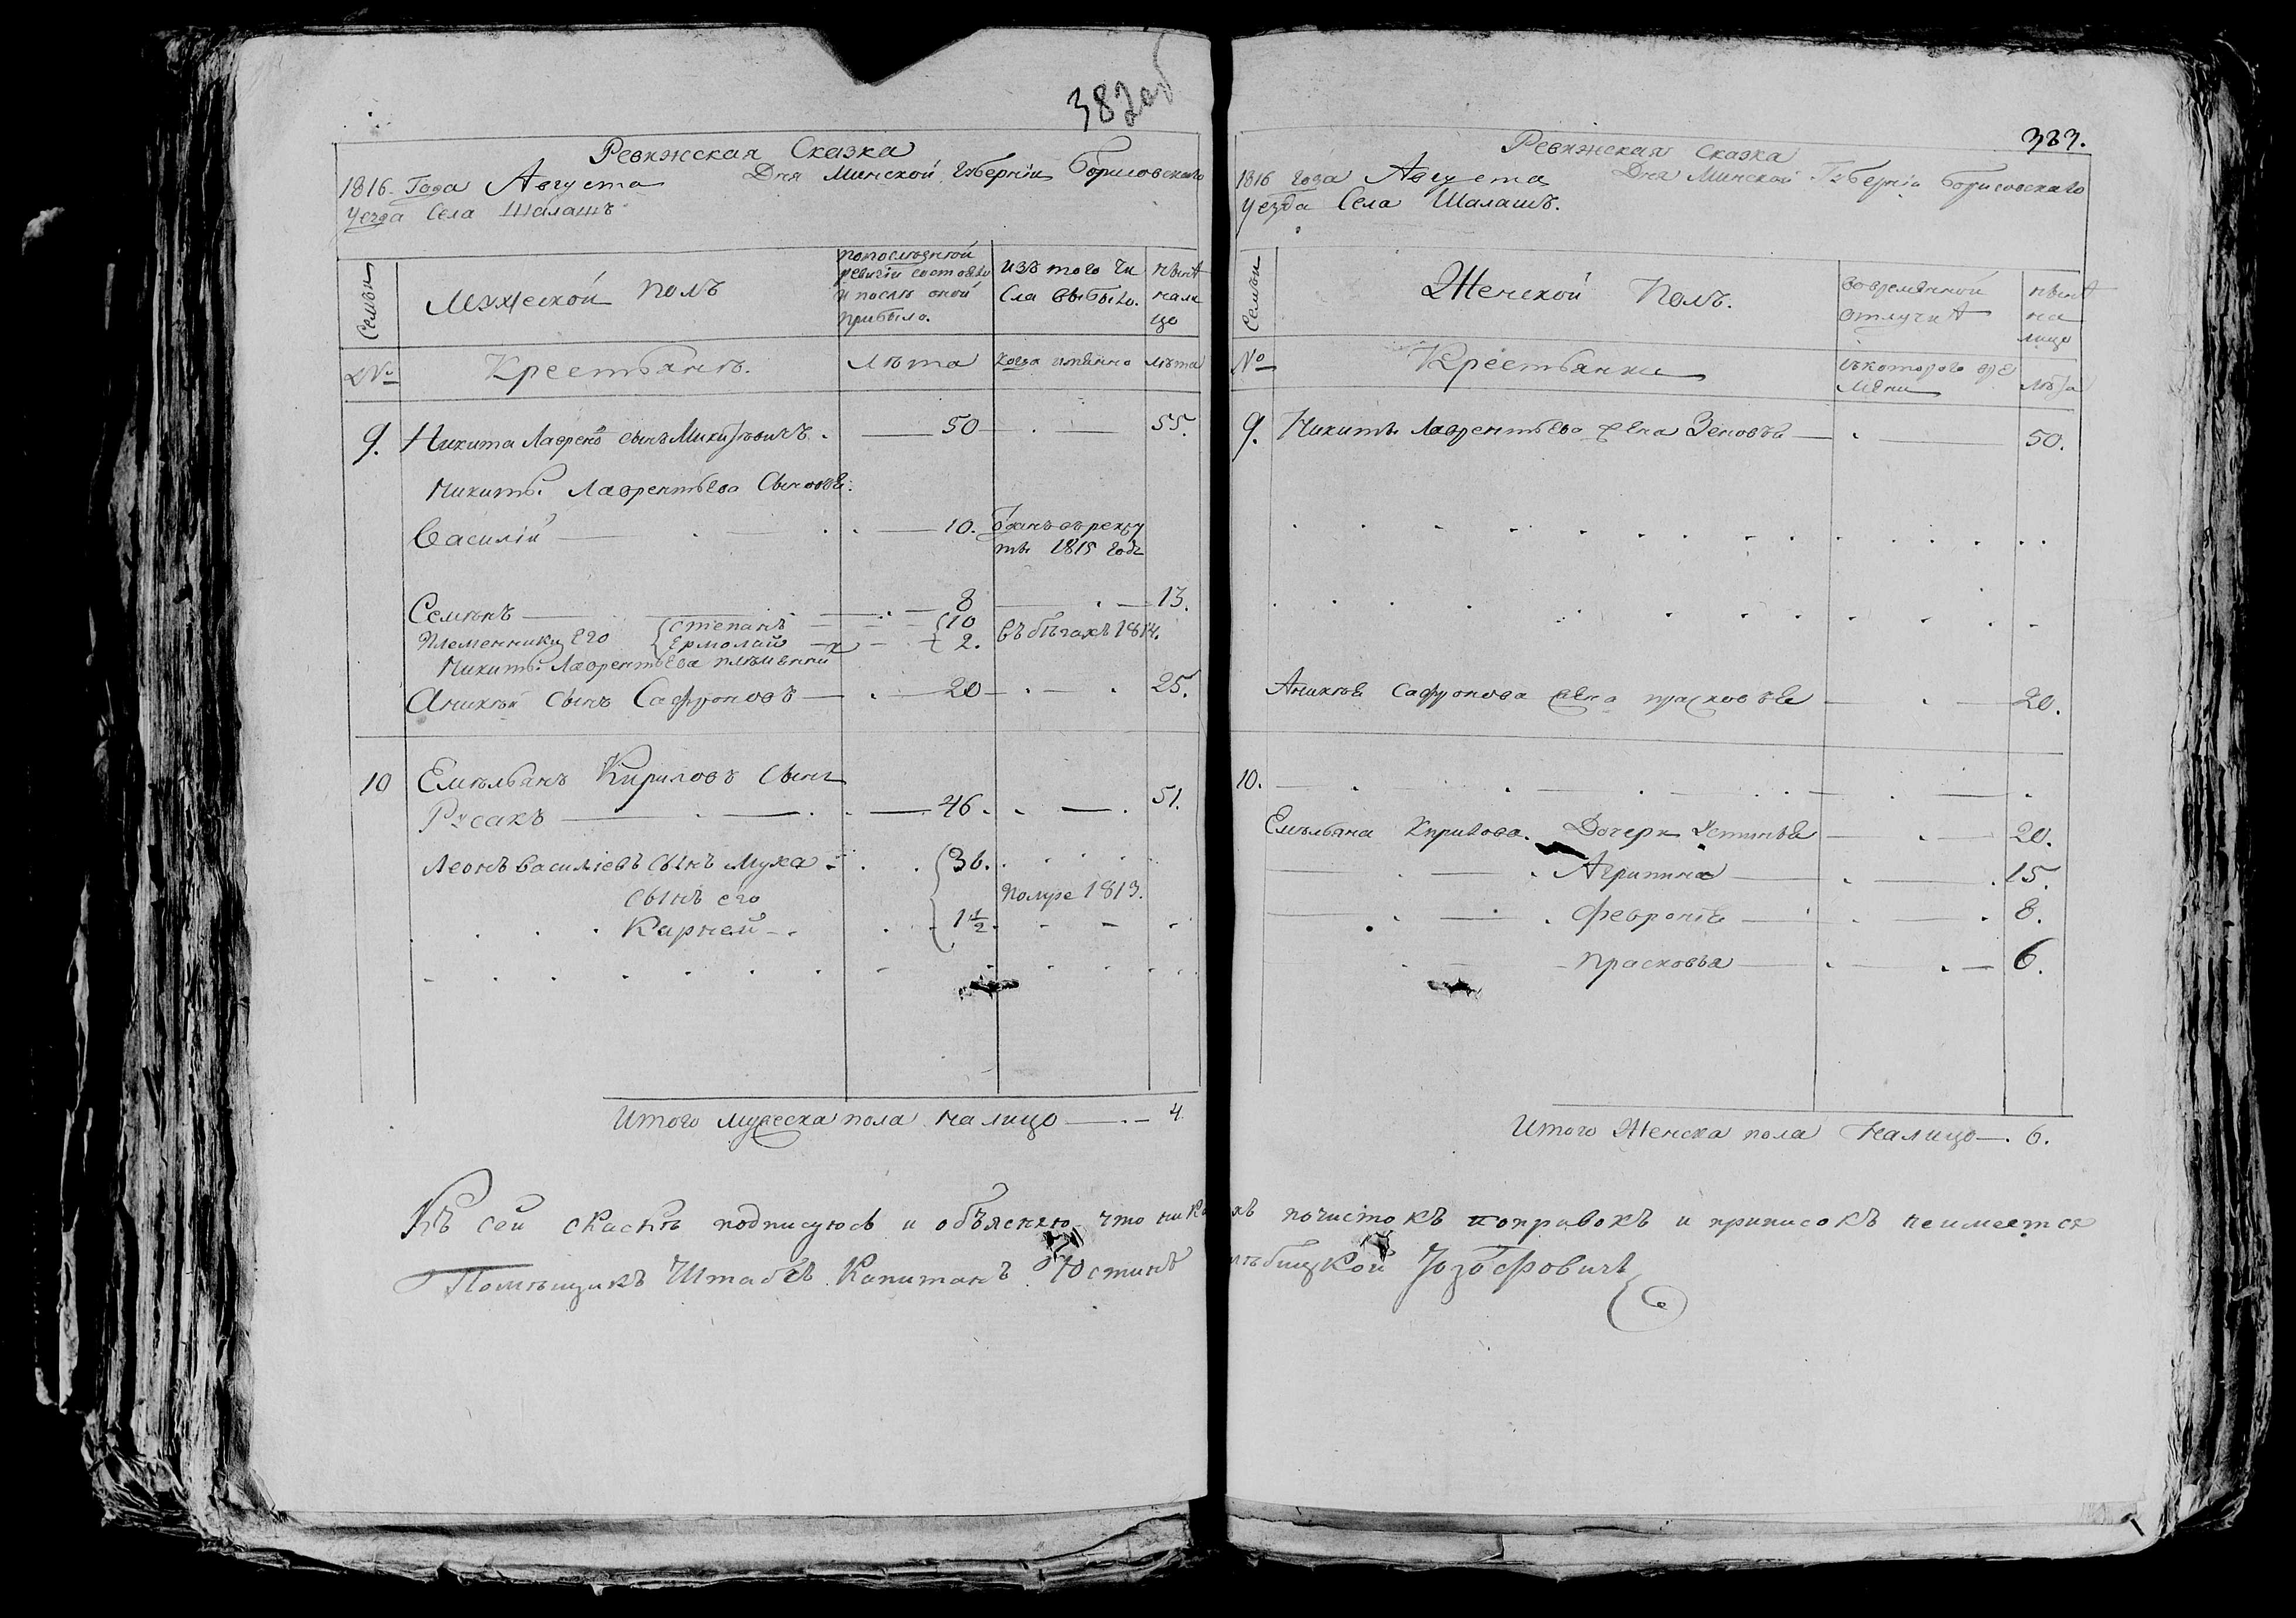 382 об
Ревижская Сказка
1816. Года Августа Дня Минской Губерніи Борисовскаго
уезда Села Шалашъ
Семьи
Мужеской Полъ
попоследней ревизіи состояло и после оной прибыло.
изъ того числа выбыло.
ныне налицо
№
Крестьянъ.
Лѣта
когда имянно
лѣта
9. Никита Лаврен. сынъ . — 50 — . — 55.
Никиты Лаврентьева Сыновья:
Василій — . — 10. Зданъ въ рекру
ты 1815 года
Семенъ — 8 — . — 13.
Племенники Его Степанъ — 10
Ермолай — 2. въ бѣгахъ 1814.
Никиты Лаврентьева племенник
Аникей сынъ Сафроновъ — . — 20 — . — . 25.
10 Емельянъ Кириловъ Сынъ
Русакъ — . — . 46. . — . 51.
Леонъ Василіевъ сынъ Муха . . 36.
сынъ его помре 1813.
Карней — . 1 1/2.
Итого мужеска пола налицо — . — 4
383.
Ревижская Сказка
1816 года Августа Дня Минской Губерніи Борисовскаго
уезда Села Шалашъ.
Семьи
Женской Полъ.
вовременной отлучке
ныне на лицо
№
Крестьянки
съкотораго времени
лѣта
9. Никиты Лаврентьева жена Зеновья — . — 50.
Аникея Сафронова жена прасковья — . — 20.
10. — . — . — .
Емельяна Кирилова. Дочери Устинья — . — 20.
Агрипина — . — . 15.
Февронія — . — . 8.
прасковья — . . — 6.
Итого Женска пола Налицо — . 6.
Къ сей скаскѣ подписуюсь и объясняю что никакихъ почистокъ поправокъ и приписокъ неимеется
Помѣщикъ Штабсъ Капитанъ Юстинъ Іозофовичъ